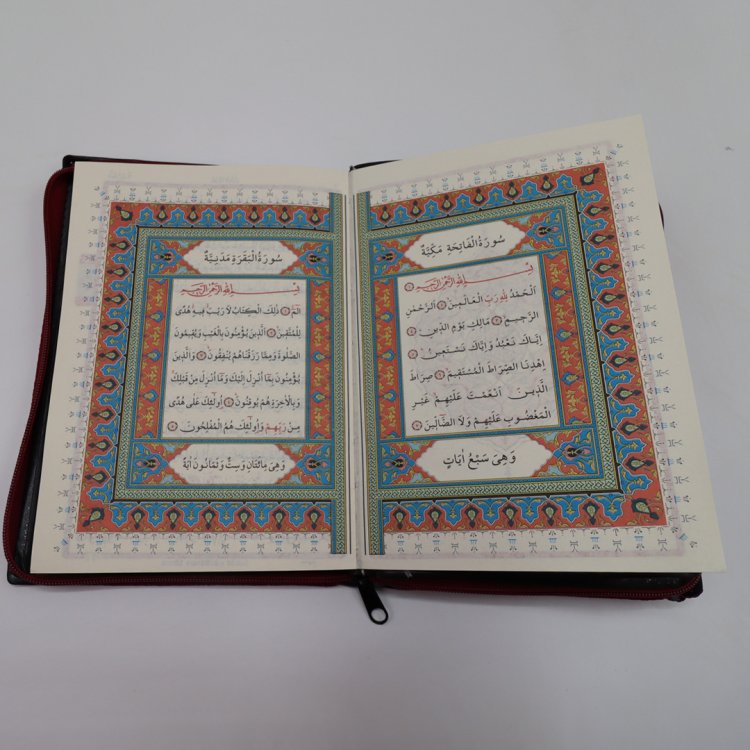 سُورَةُ الْفَاتِحَةِ مَكِّيَّةٌ
بِسْمِ اللّٰهِ الرَّحْمٰنِ الرَّحِيمِ
اَلْحَمْدُ لِلّٰهِ رَبِّ الْعَالَمِينَ اَلرَّحْمٰنِ
الرَّحِيمِ مَالِكِ يَوْمِ الدِّينِ
اِيَّاكَ نَعْبُدُ وَاِيَّاكَ نَسْتَعِينُ
اِهْدِنَا الصِّرَاطَ الْمُسْتَقِيمَ صِرَاطَ
الَّذِينَ اَنْعَمْتَ عَلَيْهِمْ غَيْرِ
الْمَغْضُوبِ عَلَيْهِمْ وَلَا الضَّالِّينَ
وَهِيَ سَبْعُ اٰيَاتٍ
سُورَةُ الْبَقَرَةِ مَدَنِيَّةٌ
بِسْمِ اللّٰهِ الرَّحْمٰنِ الرَّحِيمِ
الٓمٓ ذٰلِكَ الْكِتَابُ لَا رَيْبَ فِيهِ هُدًى
لِلْمُتَّقِينَ اَلَّذِينَ يُؤْمِنُونَ بِالْغَيْبِ وَيُقِيمُونَ
الصَّلٰوةَ وَمِمَّا رَزَقْنَاهُمْ يُنْفِقُونَ وَالَّذِينَ
يُؤْمِنُونَ بِمَٓا اُنْزِلَ اِلَيْكَ وَمَٓا اُنْزِلَ مِنْ قَبْلِكَ
وَبِالْاٰخِرَةِ هُمْ يُوقِنُونَ اُو۬لٰٓئِكَ عَلٰى هُدًى
مِنْ رَبِّهِمْ وَاُو۬لٰٓئِكَ هُمُ الْمُفْلِحُونَ
وَهِيَ مِائَتَانِ وَسِتٌّ وَثَمَانُونَ اٰيَةً